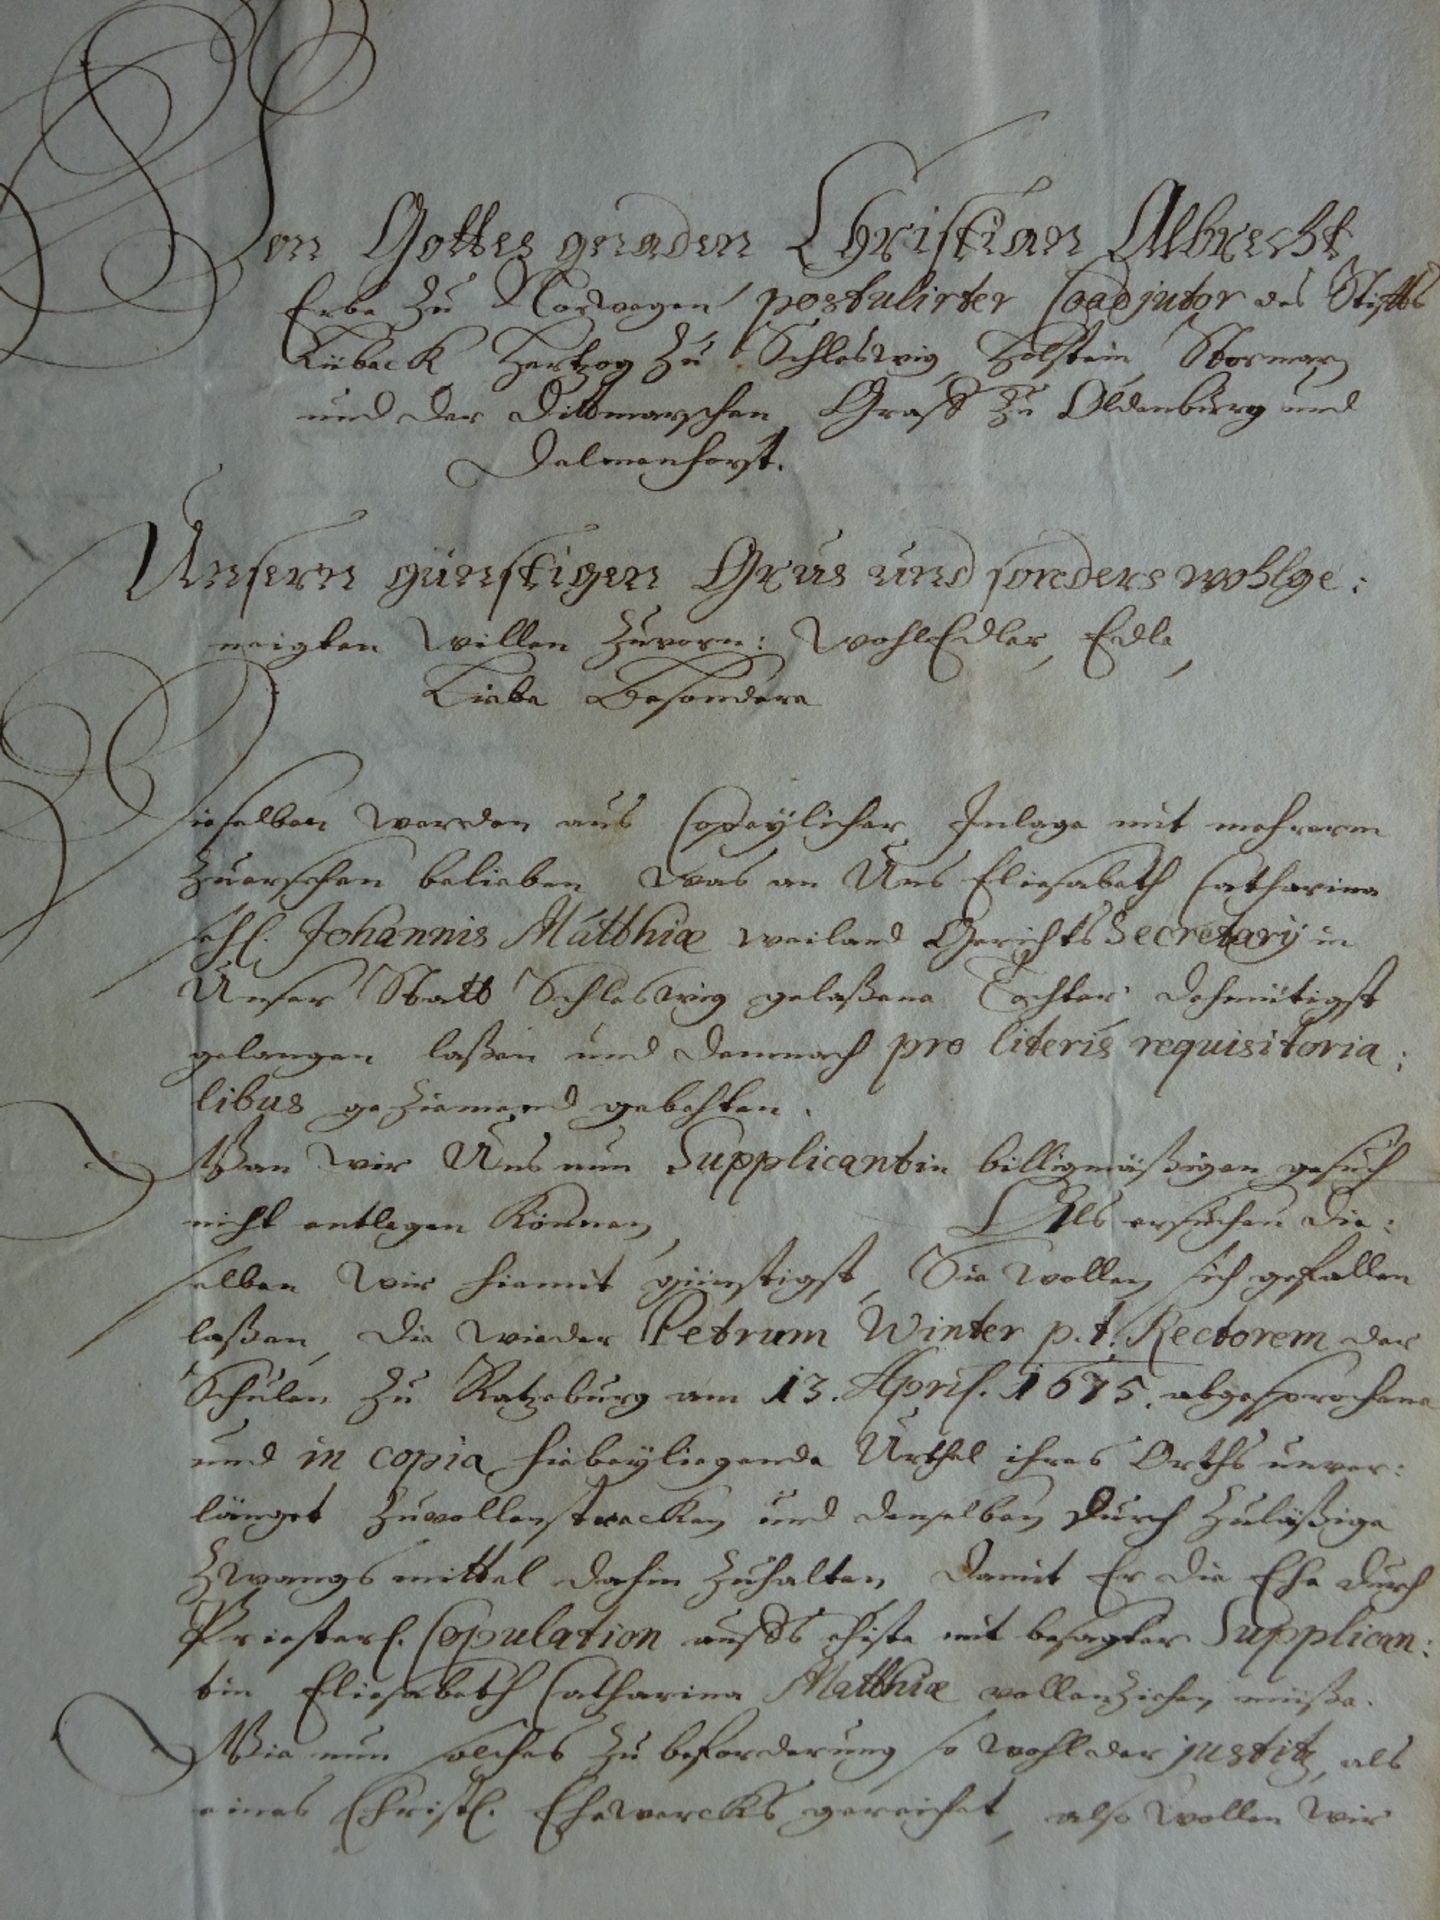 Von Gottes gnaden Christian Albrecht
Erbe zu Norwegen, postulirter Coadjutor des Stiffts
Lübeck Hertzog zu Schleswig, Holstein, Stormarn
und der Dittmarschen, Graff zu Oldenburg und
Delmenhorst.
Unsern günstigen Grus und sonders wohlge:
neigten Willen zuvorn: WohlEdler, Edle,
Liebe Besondere
Dieselben werden aus Copeylicher Inlage mit mehrerm
zuersehen belieben, was an Uns Eliesabeth Catharina
sehl. Johannis Matthiæ weiland GerichtsSecretarij in
Unser Statt Schleswig gelaßene Tochter dehmütigst
gelangen laßen und demnach pro literis requisitoria:
libus geziemend gebehten.
Wan wir Uns nun Supplicantin billigmäßigen gesuch
nicht entlegen können, Als ersuchen die:
selben Wir hiemit günstigst, Sie wollen sich gefallen
laßen, die wieder Petrum Winter p.t. Rectorem der
Schulen zu Ratzeburg am 13. April. 1675. abgesprochene
und in copia hiebeyliegende Urthel ihres Orths unver:
länget zuvollenstrecken und denselben durch zuläßige
Zwangsmittel dahin zuhalten, damit Er die Ehe durch
Priesterl. Copulation auffs ehiste mit besagter Supplican:
tin Eliesabeth Catharina Matthiæ vollenziehen müße.
Wie nun solches zu beforderung so wohl der justitz, als
eines Christl. Ehewercks gereichet, also wollen wir